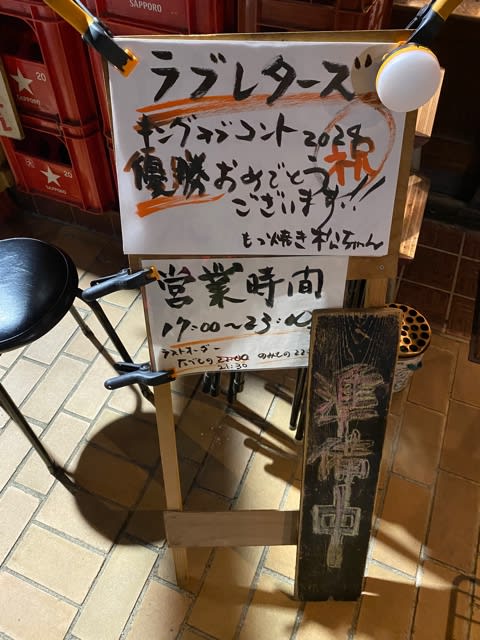 SAPPORO
SAPPORO
20
20
SAPPORO
ラブレターズ
キングオブコント2024
祝
優勝おめでとう
ございます!!
もつ焼き松ちゃん
営業時間
17:00〜23:00
ラストオーダー
たべもの 22:00 のみもの 22:
21:30
準備中